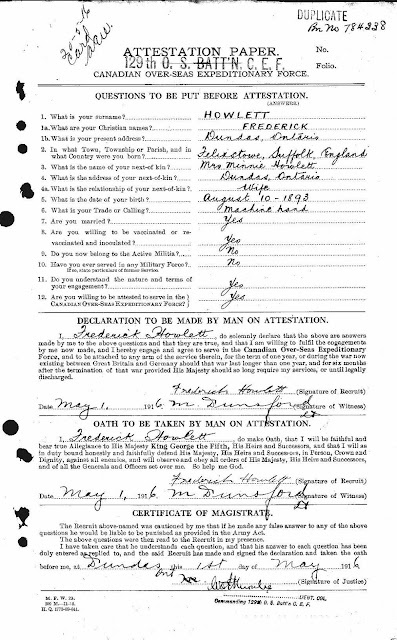 DUPLICATE
Bn No 784238
ATTESTATION PAPER.
No.
129th O. S. BATT'N. C. E. F.
Folio.
CANADIAN OVER-SEAS EXPEDITIONARY FORCE.
QUESTIONS TO BE PUT BEFORE ATTESTATION.
(ANSWERS)
1. What is your surname? HOWLETT
1a. What are your Christian names? FREDERICK
1b. What is your present address? Dundas, Ontario
2. In what Town, Township or Parish, and in
what Country were you born? Felixstowe, Suffolk, England
3. What is the name of your next-of-kin? Mrs Minnie Howlett
4. What is the address of your next-of-kin? Dundas, Ontario
4a. What is the relationship of your next-of-kin? Wife
5. What is the date of your birth? August 10 - 1893
6. What is your Trade or Calling? Machine hand
7. Are you married? Yes
8. Are you willing to be vaccinated or re-
vaccinated and inoculated? Yes
9. Do you now belong to the Active Militia? No
10. Have you ever served in any Military Force? No
If so, state particulars of former Service.
11. Do you understand the nature and terms of
your engagement? Yes
12. Are you willing to be attested to serve in the
CANADIAN OVER-SEAS EXPEDITIONARY FORCE? Yes
DECLARATION TO BE MADE BY MAN ON ATTESTATION.
I, Frederick Howlett, do solemnly declare that the above are answers
made by me to the above questions and that they are true, and that I am willing to fulfil the engagements
by me now made, and I hereby engage and agree to serve in the Canadian Over-Seas Expeditionary
Force, and to be attached to any arm of the service therein, for the term of one year, or during the war now
existing between Great Britain and Germany should that war last longer than one year, and for six months
after the termination of that war provided His Majesty should so long require my services, or until legally
discharged.
Frederick Howlett (Signature of Recruit)
Date May 1, 1916 M Dunsford (Signature of Witness)
OATH TO BE TAKEN BY MAN ON ATTESTATION.
I, Frederick Howlett, do make Oath, that I will be faithful and
bear true Allegiance to His Majesty King George the Fifth, His Heirs and Successors, and that I will as
in duty bound honestly and faithfully defend His Majesty, His Heirs and Successors, in Person, Crown and
Dignity, against all enemies, and will observe and obey all orders of His Majesty, His Heirs and Successors,
and of all the Generals and Officers set over me. So help me God.
Frederick Howlett (Signature of Recruit)
Date May 1, 1916 M Dunsford (Signature of Witness)
CERTIFICATE OF MAGISTRATE.
The Recruit above-named was cautioned by me that if he made any false answer to any of the above
questions he would be liable to be punished as provided in the Army Act.
The above questions were then read to the Recruit in my presence.
I have taken care that he understands each question, and that his answer to each question has been
duly entered as replied to, and the said Recruit has made and signed the declaration and taken the oath
before me, at Dundas this 1st day of May 1916
Ont
(Signature of Justice)
LIEUT. COL.
Commanding 129th O. S. Batt'n C. E. F.
M. F. W. 23.